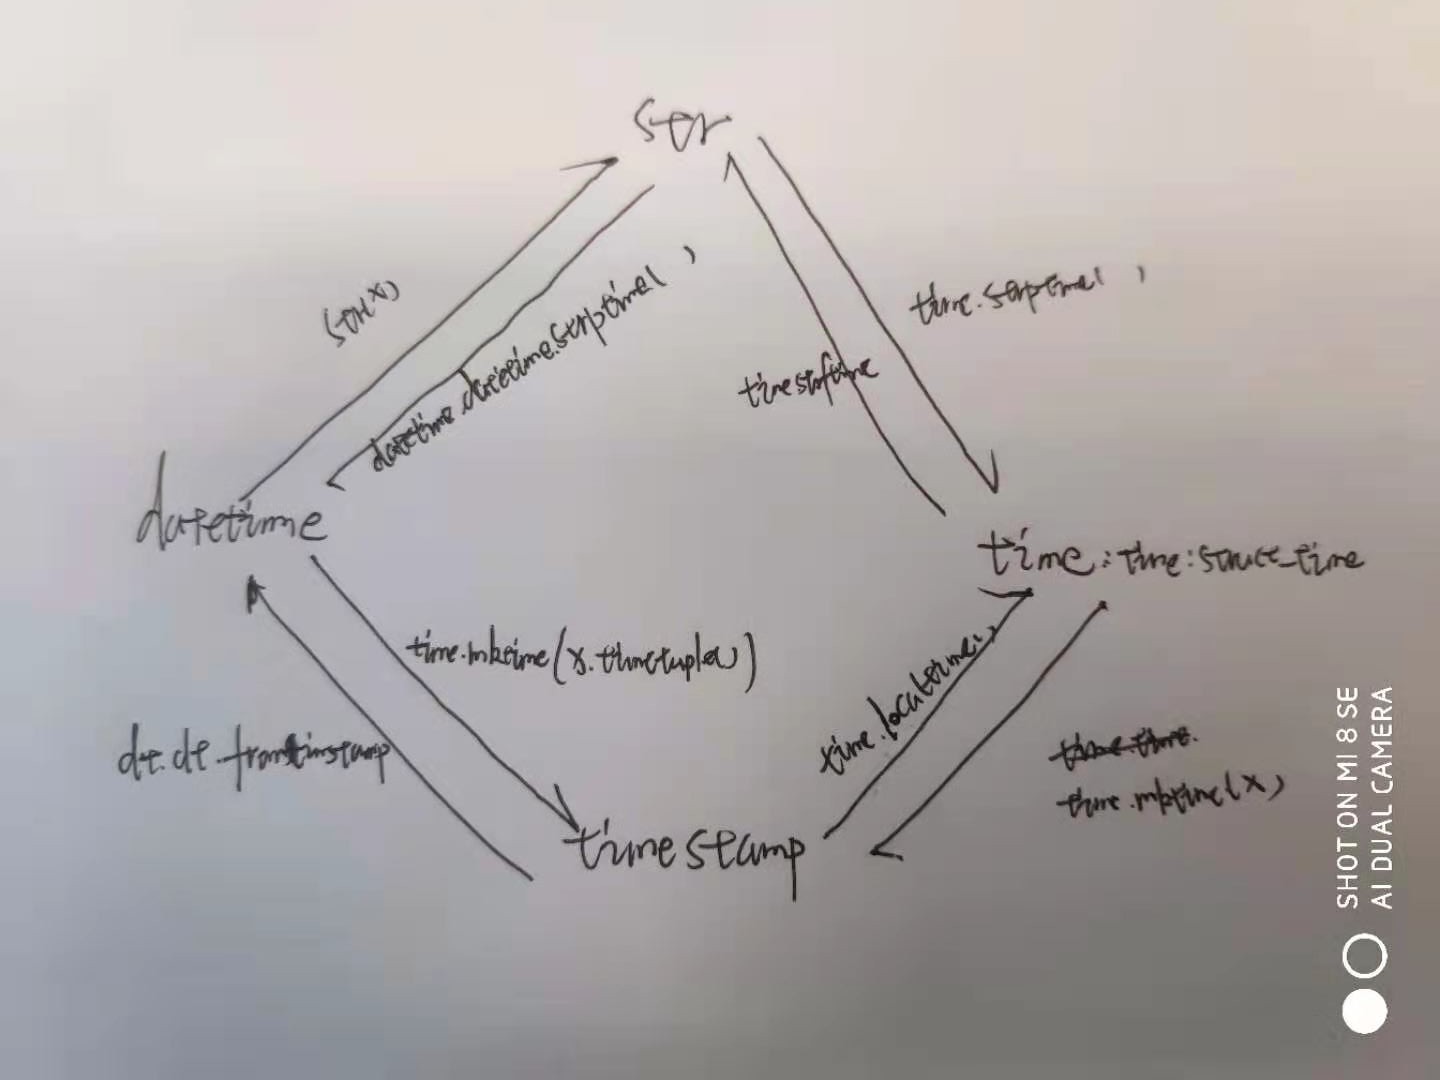 str
str(x)
datetime.datetime.strptime( )
time.strptime( )
timestrftime
datetime
time:time:struct_time
time.mktime(x.timetuple())
time.localtime()
dt.dt.fromtimstamp
time.time.
time.mktime(x)
timestamp
SHOT ON MI 8 SE
AI DUAL CAMERA